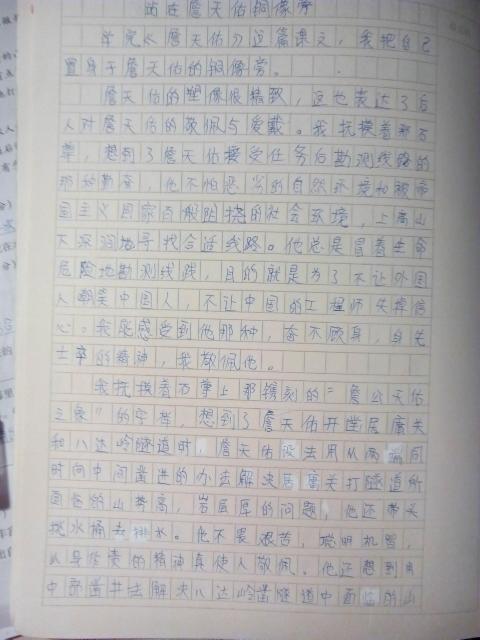 站在詹天佑铜像旁
学完《詹天佑》这篇课文，我把自己
置身于詹天佑的铜像旁。
詹天佑的塑像很精致，这也表达了后
人对詹天佑的敬佩与爱戴。我抚摸着那石
尊，想到了詹天佑接受任务后勘测线路的
那种勤奋，他不怕恶劣的自然环境和被帝
国主义国家百般阻挠的社会环境，上高山
下深涧地寻找合适线路。他总是冒着生命
危险地勘测线路，目的就是为了不让外国
人嘲笑中国人，不让中国的工程师失掉信
心。我能感受到他那种，奋不顾身，身先
士卒的精神，我敬佩他。
我抚摸着石尊上那镌刻的“詹公天佑
之象”的字样，想到了詹天佑开凿居庸关
和八达岭隧道时，詹天佑设法用从两端同
时向中间凿进的办法解决居庸关打隧道所
面临的山势高，岩层厚的问题，他还带头
挑水桶去排水。他不畏艰苦，聪明机智，
以身作责的精神真使人敬佩。他还想到用
中部凿井法解决八达岭凿隧道中面临的山